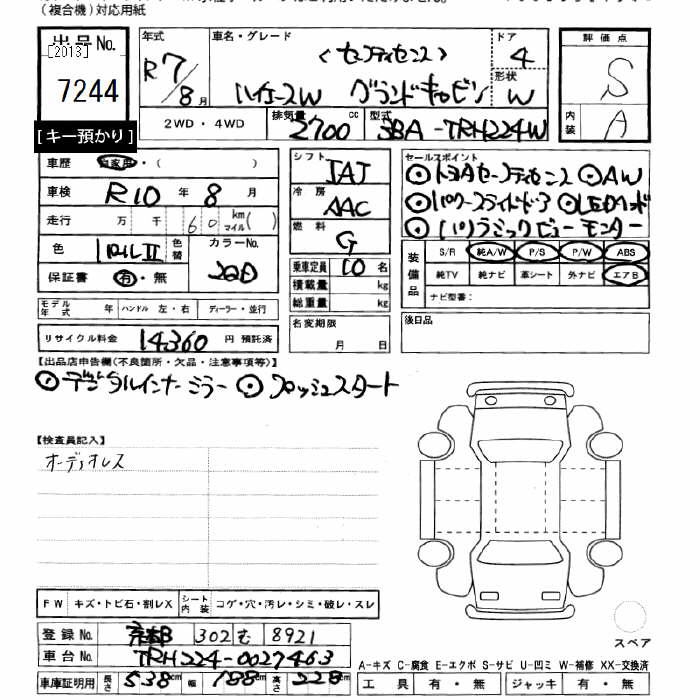 (複合機)対応用紙
出品No.
[2013]
7244
[キー預かり]
年式
R7/8月
車名・グレード
<セーフティセンス>
ハイエースW グランドキャビン
ドア
4
形状
W
2WD・4WD
排気量
2700cc
型式
3BA-TRH224W
評価点
S
内装
A
車歴 自家用・( )
車検 R10年8月
走行 万 千 60 km マイル( )
色
色替
カラーNo.
保証書 有・無
モデル年式 年 ハンドル 左・右 ディーラー・並行
リサイクル料金 14,360円 預託済
シフト
IAT
冷房
AAC
燃料
G
乗車定員 10名
積載量 kg
総重量 kg
名変期限
月 日
セールスポイント
◎トヨタセーフティセンス ◎AW
◎パワースライドドア ◎LEDヘッド
◎パノラミックビューモニター
装備品
S/R 純A/W P/S P/W ABS
純TV 純ナビ 革シート 外ナビ エアB
ナビ型番:
後日品
【出品店申告欄(不良箇所・欠品・注意事項等)】
◎デジタルインナーミラー ◎プッシュスタート
【検査員記入】
オーディオレス
FW キズ・トビ石・割レX シート内装 コゲ・穴・汚レ・シミ・破レ・スレ
登録No. 302 む 8921
車台No. TRH224-0027463
車庫証明用 長さ 538cm 幅 188cm 高さ 228cm
スペア
A-キズ C-腐食 E-エクボ S-サビ U-凹ミ W-補修 XX-交換済
工具 有・無 ジャッキ 有・無